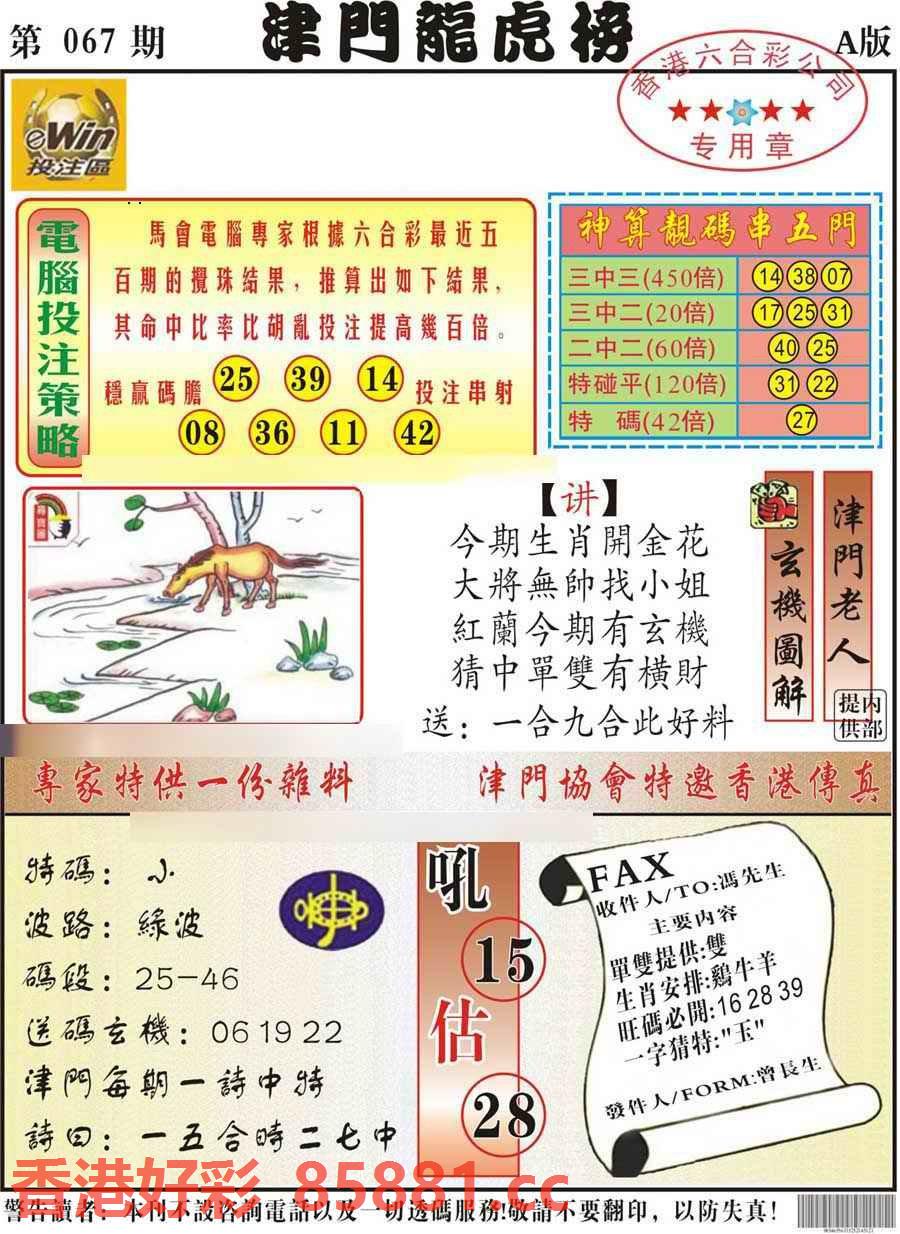 第 067 期
津門龍虎榜
A版
香港六合彩公司
专用章
eWin
投注區
電腦投注策略
馬會電腦專家根據六合彩最近五
百期的攪珠結果，推算出如下結果，
其命中比率比胡亂投注提高幾百倍。
穩贏碼膽 25 39 14 投注串射
08 36 11 42
神算靚碼串五門
三中三(450倍) 14 38 07
三中二(20倍) 17 25 31
二中二(60倍) 40 25
特碰平(120倍) 31 22
特 碼(42倍) 27
尋寶圖
【讲】
今期生肖開金花
大將無帥找小姐
紅蘭今期有玄機
猜中單雙有橫財
送：一合九合此好料
玄機圖解
津門老人
内部提供
專家特供一份雜料
津門協會特邀香港傳真
特碼：小
波路：綠波
碼段：25-46
送碼玄機：06 19 22
津門每期一詩中特
詩曰：一五合時二七中
吼
15
估
28
FAX
收件人/TO:馮先生
主要内容
單雙提供:雙
生肖安排:鷄牛羊
旺碼必開:16 28 39
一字猜特:"玉"
發件人/FORM:曾長生
香港好彩 85881.cc
警告讀者：本刊不設咨詢電話以及一切透碼服務!敬請不要翻印，以防失真!